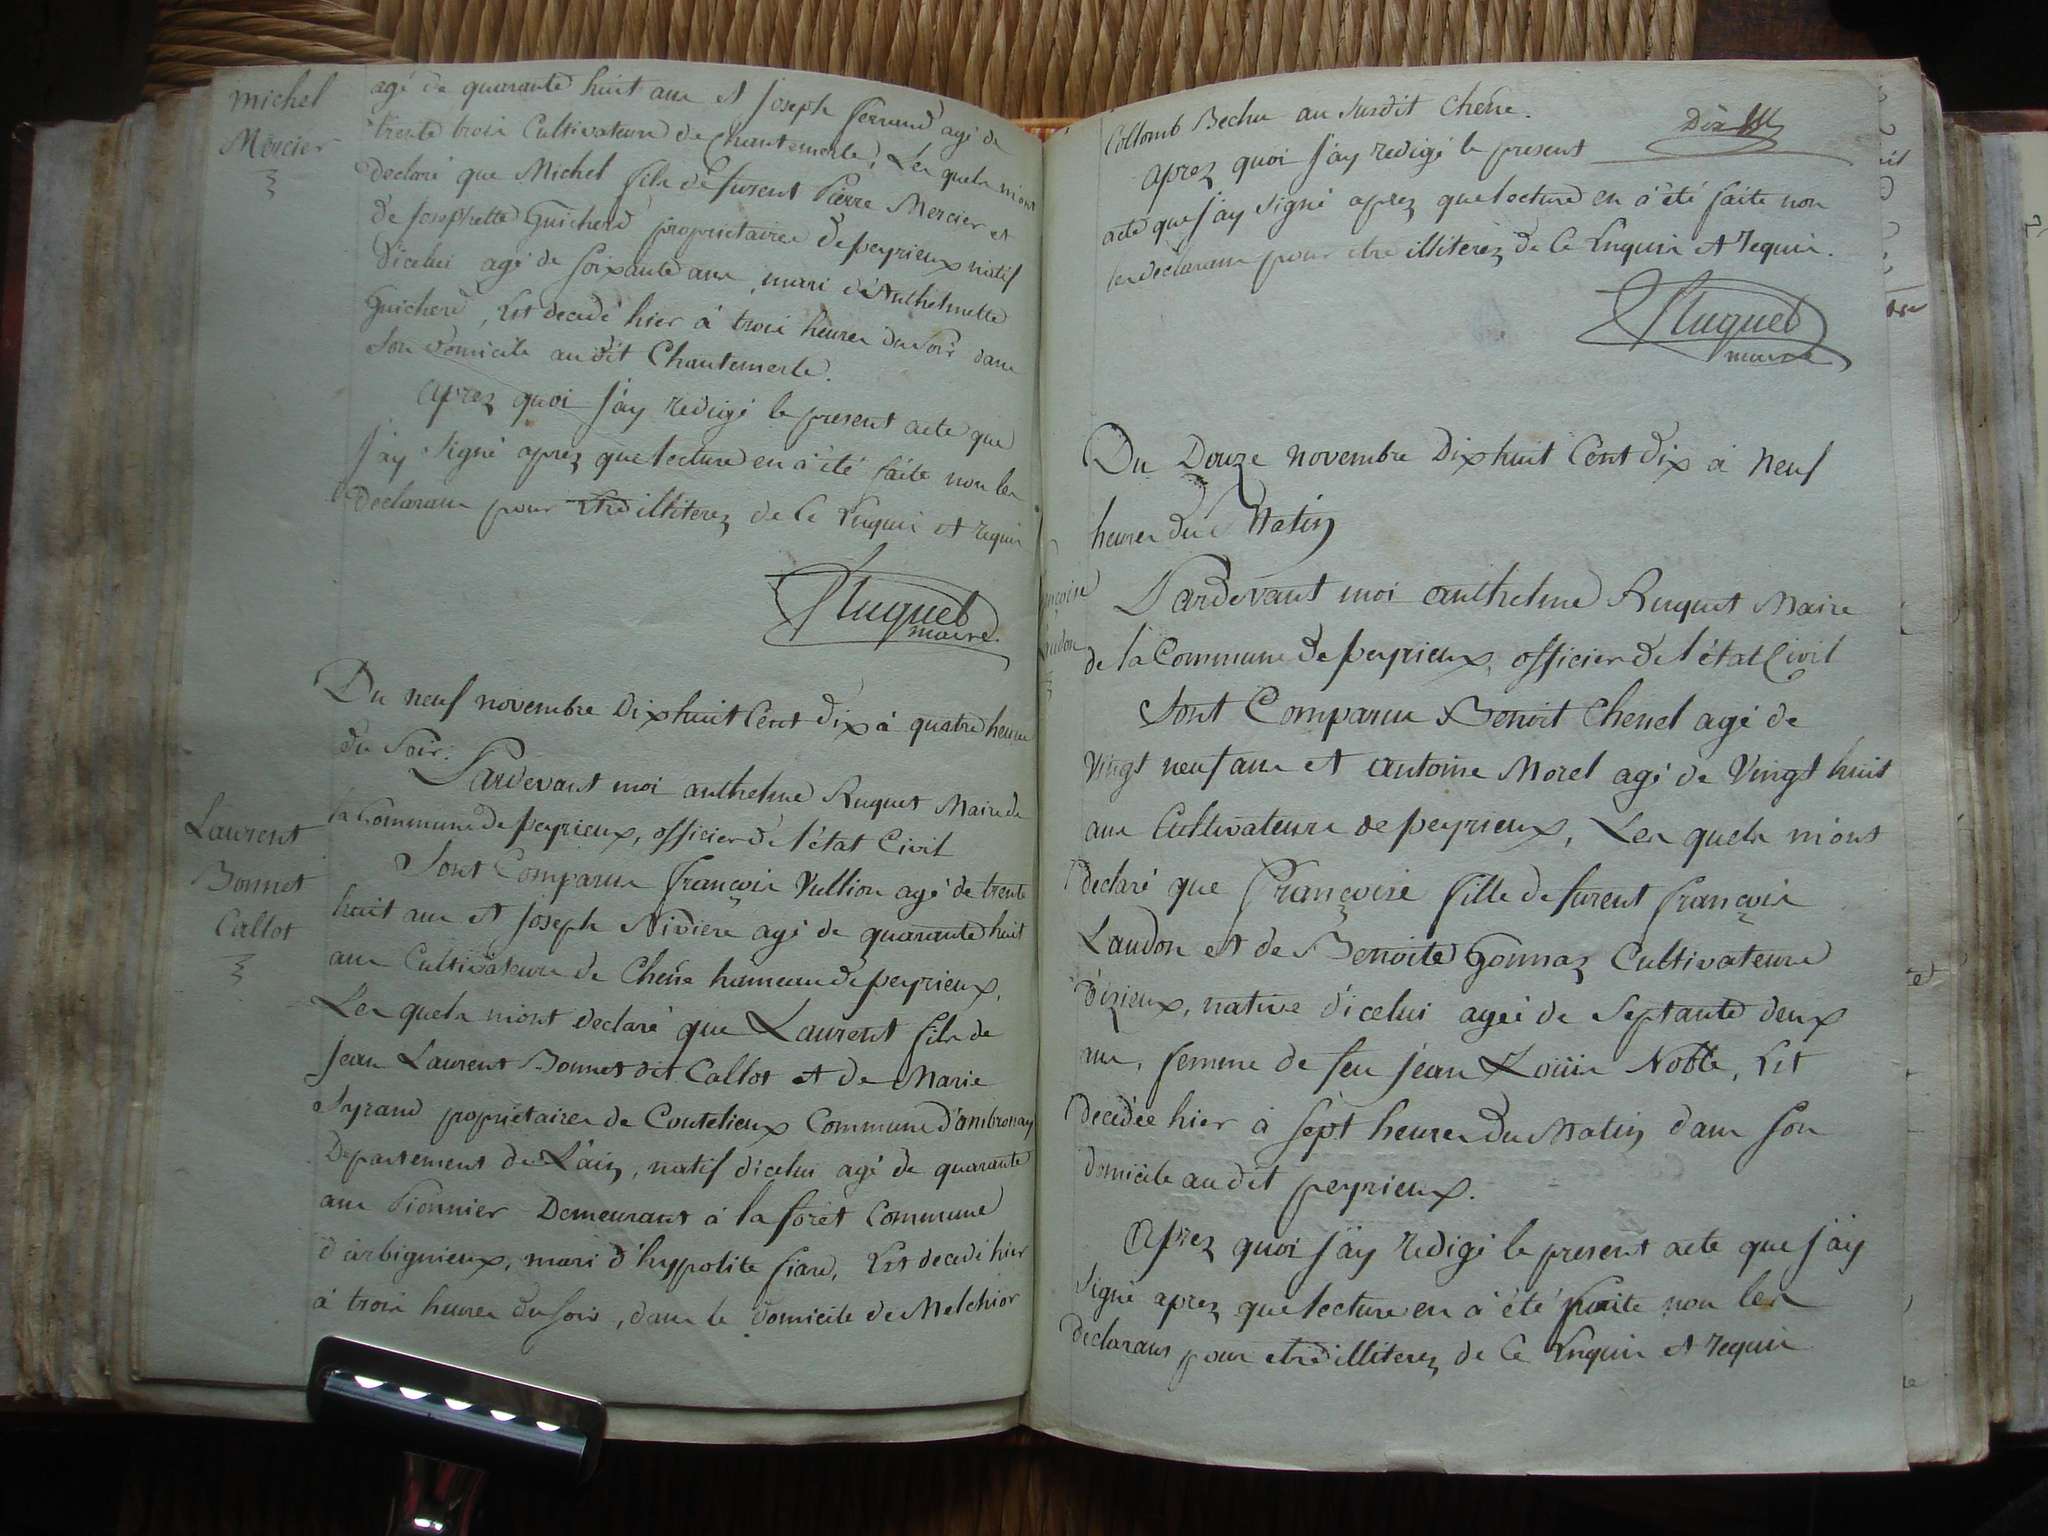 michel
Mercier
agé de quarante huit ans et Joseph ferrand agé de
trente trois Cultivateurs de Chantemerle, Les quels m'ont
declaré que Michel fils de furent Pierre Mercier et
de Josephette Guicherd proprietaires de peyrieux natif
d'icelui agé de soixante ans, mari d'Anthelmette
Guicherd, Est decedé hier à trois heures du Soir dans
son domicile au dit Chantemerle.
aprez quoi j'ay redigé le present acte que
j'ay signé aprez que lecture en à été faite non les
declarans pour Etre illiterez de Ce Enquis et requis
Ruquet
maire.
Du neuf novembre Dix huit Cent dix à quatre heures
du Soir.
Pardevant moi anthelme Ruquet Maire de
la Commune de peyrieux, officier de l'état Civil
Laurent
Bonnet
Callot
Sont Comparus françois Vullion agé de trente
huit ans et Joseph Nivière agé de quarante huit
ans Cultivateurs de Chêne hameau de peyrieux,
Les quels m'ont declaré que Laurent fils de
jean Laurent Bonnet dit Callot et de Marie
Syrand propriétaires de Coutelieux Commune d'ambronay
Departement de L'ain, natif d'icelui agé de quarante
ans Pionnier Demeurant à la foret Commune
d'arbignieux, mari d'hyppolite fiard, Est decedé hier
à trois heures du soir, dans le domicile de Melchior
Collomb Bechu au susdit Chêne.
aprez quoi j'ay redigé le present
acte que j'ay signé aprez que lecture en à été faite non
les declarans pour etre illiterez de Ce Enquis et requis.
Ruquet
maire
Du Douze novembre Dix huit Cent dix à Neuf
heures du Matin
Pardevant moi anthelme Ruquet Maire
de la Commune de peyrieux, officier de l'état Civil
Sont Comparus Benoit Chenel agé de
Vingt neuf ans et antoine Morel agé de Vingt huit
ans Cultivateurs de peyrieux, Les quels m'ont
declaré que Françoise fille de furent françois
Laudon et de Benoite Gonnaz Cultivateurs
d'izieux, native d'icelui ageé de Septante deux
ans, femme de feu jean Louis Noble, Est
decedée hier à sept heures du Matin dans son
domicile au dit peyrieux.
Aprez quoi j'ay redigé le present acte que j'ay
signé aprez que lecture en à été faite non les
declarans pour etre illiterez de Ce Enquis et requis